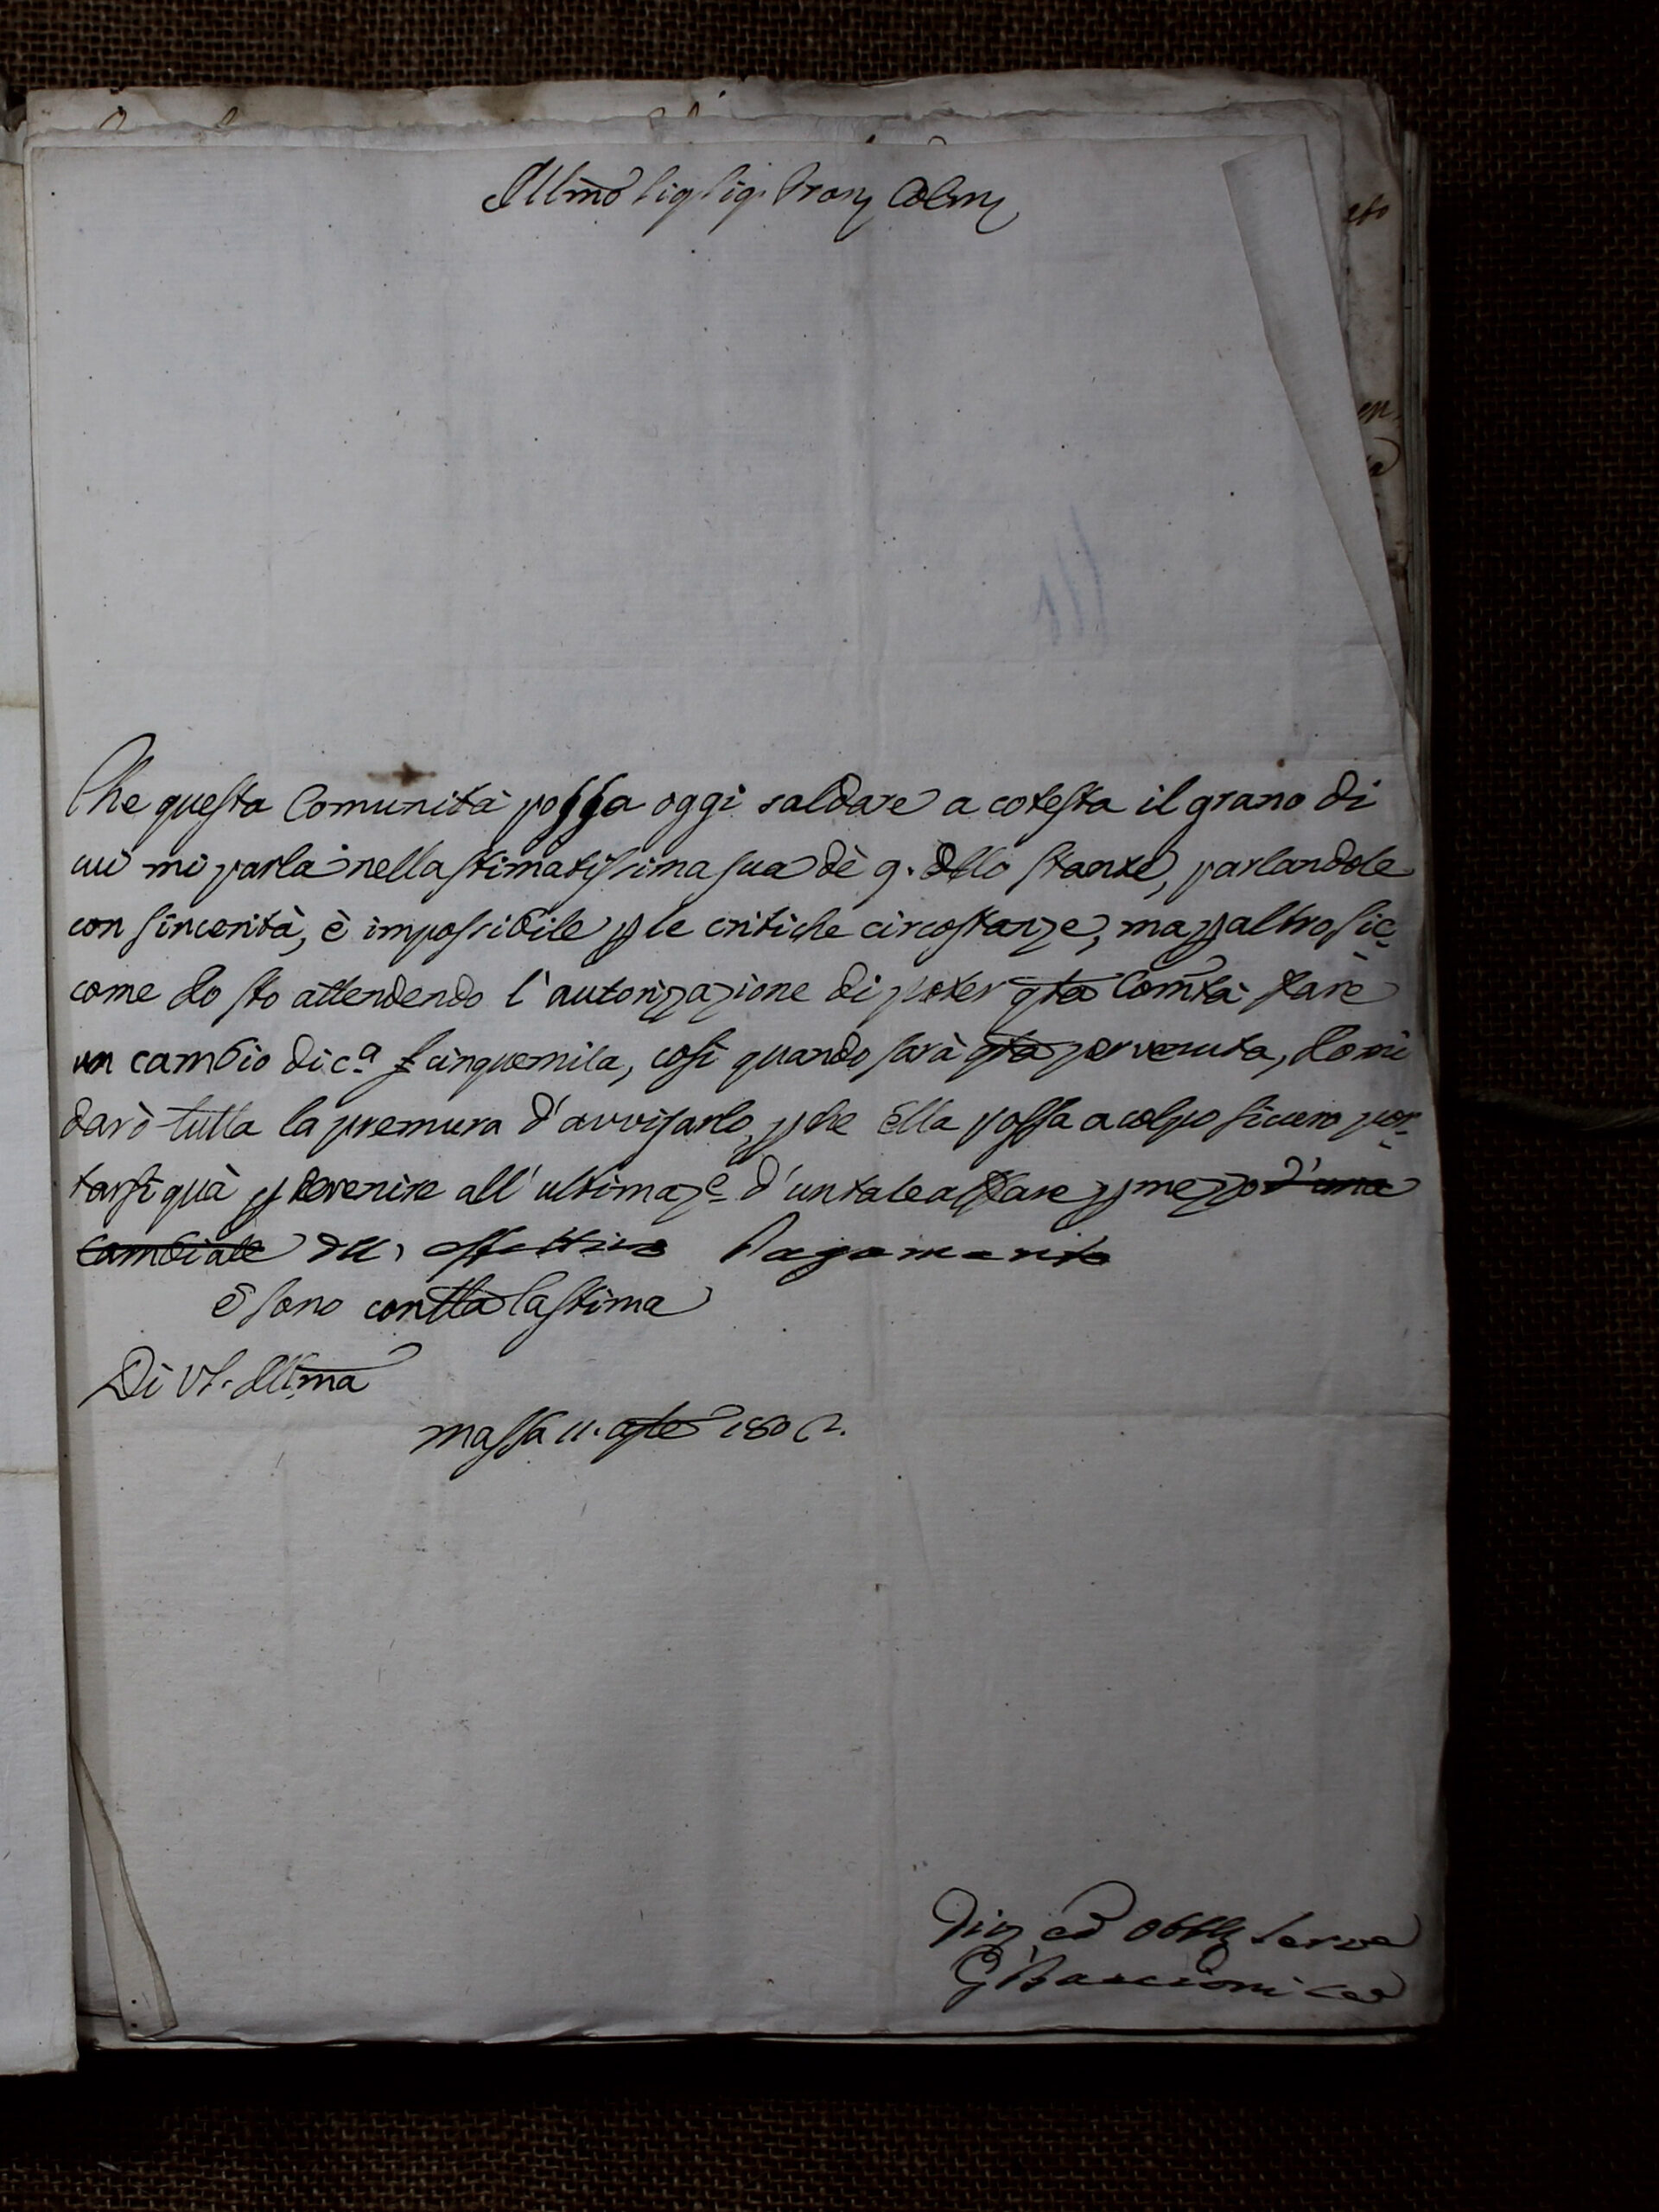 Illmo Sig. Sig. Pron Colmo
Che questa Comunità possa oggi saldare a cotesta il grano di
cui mi parla nella stimatissima sua dè 9. dllo stante, parlandole
con sincerità, è impossibile p le critiche circostanze, ma p altro sic=
come Io sto attendendo l'autorizazione di poter qta Comtà fare
un cambio di ca cinquemila, così quando sarà qta pervenuta, Io mi
darò tutta la premura d'avvisarlo, pche Ella possa a colpo sicuro por=
tarsi quà p devenire all'ultimaze d'un tale affare p mezzo d'una
Cambiale effettivo Pagamento
E sono con tta la stima
Di VS. Illma
Massa 11. agto 1802.
ed Obblo Serve